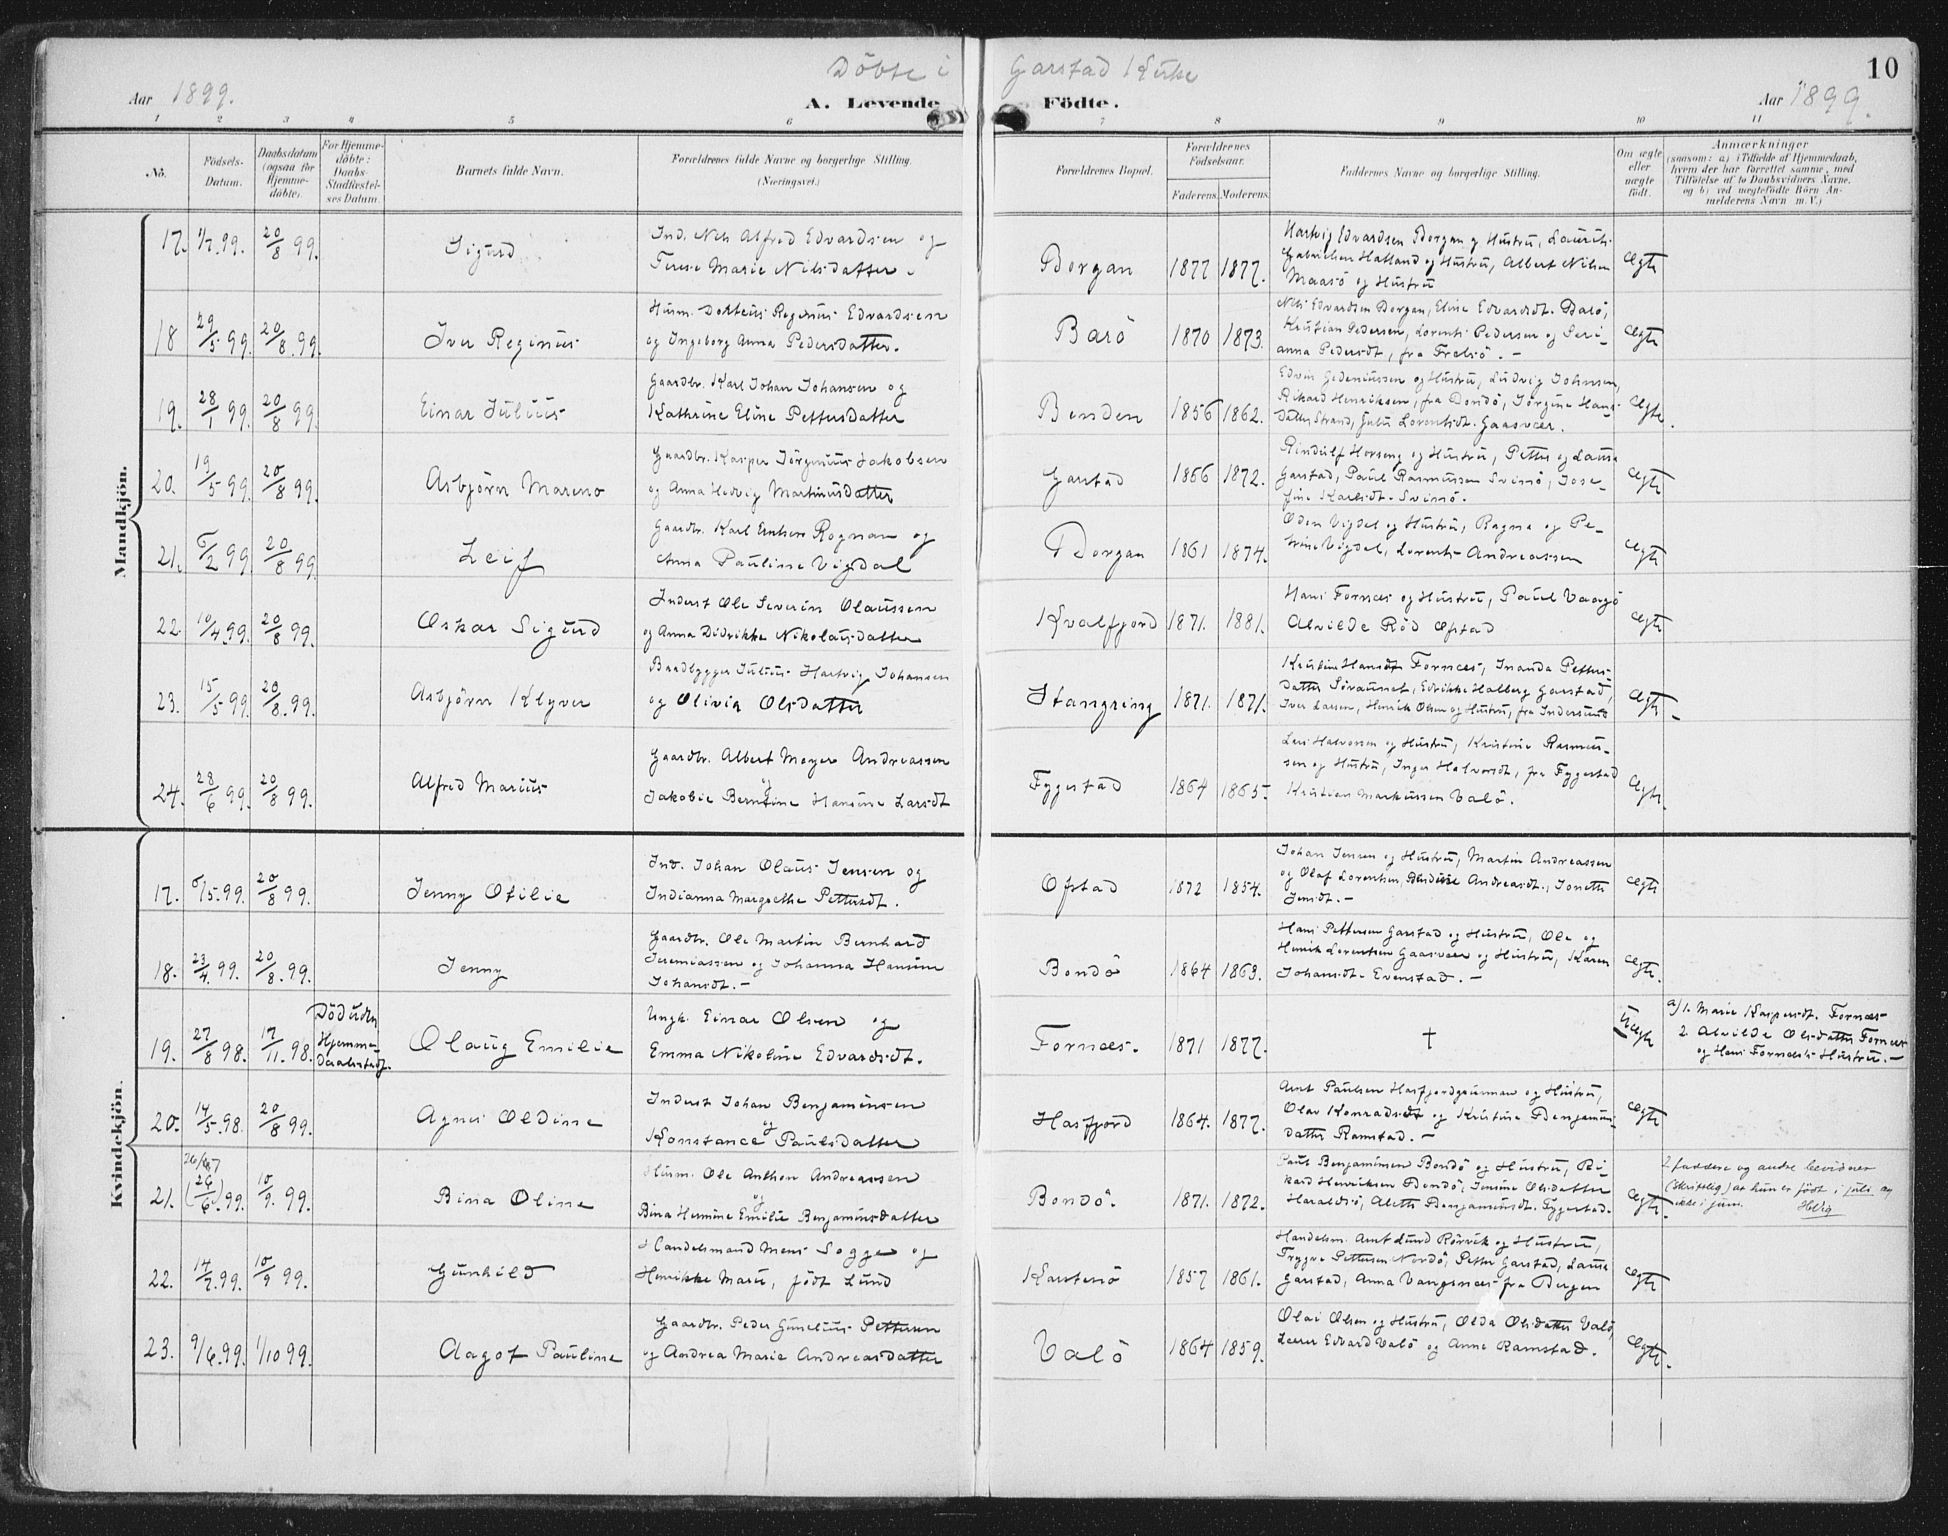 Döbte i Garstad Kirke
10
Aar 1899.
A. Levende Födte.
Aar 1899.
1 2 3 4 5 6 7 8 9 10 11
No.
Födsels-Datum.
Daabsdatum (ogsaa for Hjemme-döbte).
For Hjemme-döbte: Daabs-Stadfæstel-ses Datum.
Barnets fulde Navn.
Forældrenes fulde Navne og borgerlige Stilling. (Næringsvei.)
Forældrenes Bopæl.
Forældrenes Födselsaar.
Faderens. Moderens.
Faddernes Navne og borgerlige Stilling.
Om ægte eller uægte födt.
Anmærkninger
(saasom: a) i Tilfælde af Hjemmedaab, hvem der har forrettet samme, med Tilföielse af to Daabsvidners Navne, og b) ved uegtefödte Börn An-melderens Navn m. V.)
Mandkjön.
17. 1/7.99. 20/8 99. Sigurd
Ind. Nils Alfred Edvardsen og
Terese Marie Nilsdatter.
Borgan 1877 1877.
Hartvig Edvardsen Borgan og Hustru, Laurits
Gabrielsen Hatland og Hustru, Albert Nilsen
Maasö og Hustru
Ægte
18 29/5 99. 20/8.99. Iver Reginus
Husm. Dorteus Reginus Edvardsen
og Ingeborg Anna Pedersdatter.
Barö 1870 1873.
Nils Edvardsen Borgan, Eline Edvardsdt. Barö,
Kristian Pedersen, Lorents Pedersen og Seri-
anna Pedersdt, fra Frelsö. -
Ægte
19. 28/1 99. 20/8 99. Einar Julius
Gaardbr. Karl Johan Johansen og
Kathrine Eline Pettersdatter
Benden 1856 1862.
Edvin Gedeniussen og Hustru, Ludvig Johnsen,
Rikard Henriksen, fra Bondö, Jörgine Hans-
datter Strand, Lorentsdt. Gaasvær.
Ægte.
20. 19/5 99. 20/8 99. Asbjörn Mareno
Gaardbr. Kasper Jörginus Jakobsen
og Anna Hedvig Martinusdatter
Garstad 1866 1872.
Rindulf Horseng og Hustru, Petter og Laura
Garstad, Paul Rasmussen Svinö, Jose-
fine Karlsdt. Svinö.
Ægte
21. 5/2 99 20/8 99. Leif
Gaardbr. Karl Rognan og
Anna Pauline Vigdal
Borgan 1861 1874.
Oden Vigdal og Hustru, Ragna og Pe-
trine Vigdal, Lorents Andreassen
Ægte
22. 10/4.99. 20/8 99. Oskar Sigurd
Inderst Ole Severin Olaussen
og Anna Didrikke Nikolausdatter
Kvalfjord 1871. 1881.
Hans Fornæs og Hustru, Paul Vaagö
Alvilde Röd Ofstad
Ægte
23. 15/5 99. 20/8.99. Asbjörn Klyver
Baadbygger Julius Hartvig Johansen
og Olivia Olsdatter
Stangring 1871. 1871.
Kristine Hansdt Fornæs, Inanda Petters-
datter Edrikke Halberg Garstad,
Iver Larsen, Henrik Olsen og Hustru, fra Indersund
Ægte
24. 28/6 99. 20/8 99. Alfred Marius
Gaardbr. Albert Meyer Andreassen
og
Jakobie Berntine Hansine Larsdt
Fyggestad 1864 1865.
Lars Halvorsen og Hustru, Kristine Rasmus-
sen og Hustru, Inger Halvorsdt, fra Fyggestad
Kristian Markussen Valö.
Ægte.
Kvindekjön.
17. 5/5.99. 20/8 99. Jenny Otilie
Ind. Johan Olaus Jensen og
Indianna Margrethe Pettersdt.
Ofstad 1872 1854.
Johan Jensen og Hustru, Martin Andreassen
og Olaf Lorentsen, Andreasdt., Jonette
Jensdt. -
Ægte
18. 23/4 99. 20/8.99. Jenny
Gaardbr. Ole Martin Bernhard
Jeremiassen og Johanna Hansine
Johansdt. -
Bondö 1864 1863.
Hans Pettersen Garstad og Hustru, Ole og
Henrik Lorentsen Gaasvær og Hustru, Karen
Johansdt. Evenstad. -
Ægte.
19. 27/8 98. 17/11.98. Död uden Hjemme-Daabsstadf. Olaug Emilie
Ungk. Einar Olsen og
Emma Nikoline Edvardsdt.
Fornæs. 1871 1877.
†
Uægte
a/1. Marie Kaspersdt. Fornæs
2. Alvilde Olsdatter Fornæs
og Hans Fornæs's Hustru. -
20. 14/5.98. 20/8 99. Agnes Oldine
Inderst Johan Benjaminsen
og
Konstance Paulsdatter
Hasfjord 1864. 1877.
Arnt Paulsen Hasfjordgrunnan og Hustru,
Olav Konradsdt og Kristine Benjamins-
datter Ramstad. -
Ægte
21. 26/6.7 (26/6).99. 10/9. 99. Bina Oline
Husm. Ole Anthon Andreassen
og
Bina Hermine Emilie Benjaminsdatter
Bondö. 1871. 1872.
Paul Benjaminsen Bondö og Hustru, Ri-
kard Henriksen Bondö, Jensine Olsdatter
Haraldsö, Alette Benjaminsdt. Fyggestad.
Ægte.
2 faddere og andre bevidner
(skriftlig) at hun er född i juli og
ikke i juni. Heltzig
22. 14/7.99. 10/9 99. Gunhild
Handelsmand Mons Sogge og
Henrikke Marie, födt Lund
Karstensö 1857 1861.
Handelsm. Arnt Lund Rörvik og Hustru,
Trygve Pettersen Nordö, Petter Garstad, Laura
Garstad, Anna Vangsnes fra Bergen
Ægte
23. 9/6.99. 1/10 99. Aagot Pauline
Gaardbr. Peder Gunelius Pettersen
og Andrea Marie Andreasdatter
Valö 1864 1859.
Olai Olsen og Hustru, Olda Olsdatter Valö,
Lærer Edvard Valö og Anne Ramstad.
Ægte.